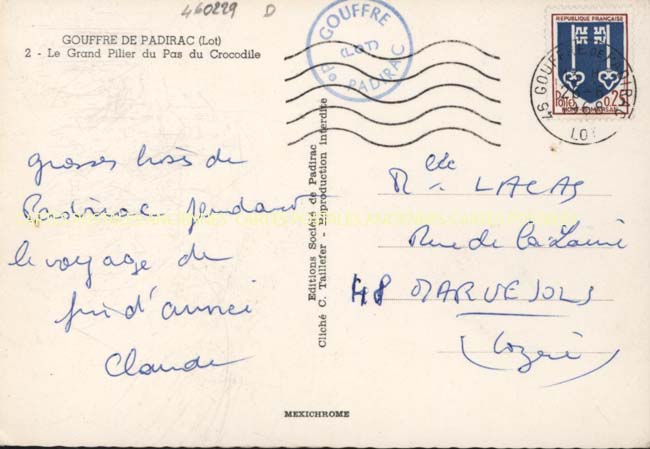 460229 D
GOUFFRE DE PADIRAC (Lot)
2 - Le Grand Pilier du Pas du Crocodile
GOUFFRE
(LOT)
de PADIRAC
REPUBLIQUE FRANÇAISE
POSTES 0,25
MONT-DE-MARSAN
46 GOUFFRE DE PADIRAC
LOT
grosses bises de
Padirac pendant
le voyage de
fin d'année
Claude
Editions Société de Padirac
Cliché C. Taillefer - Reproduction interdite
Mlle LACAS
Rue de la
48 MARVEJOLS
(Lozère)
MEXICHROME